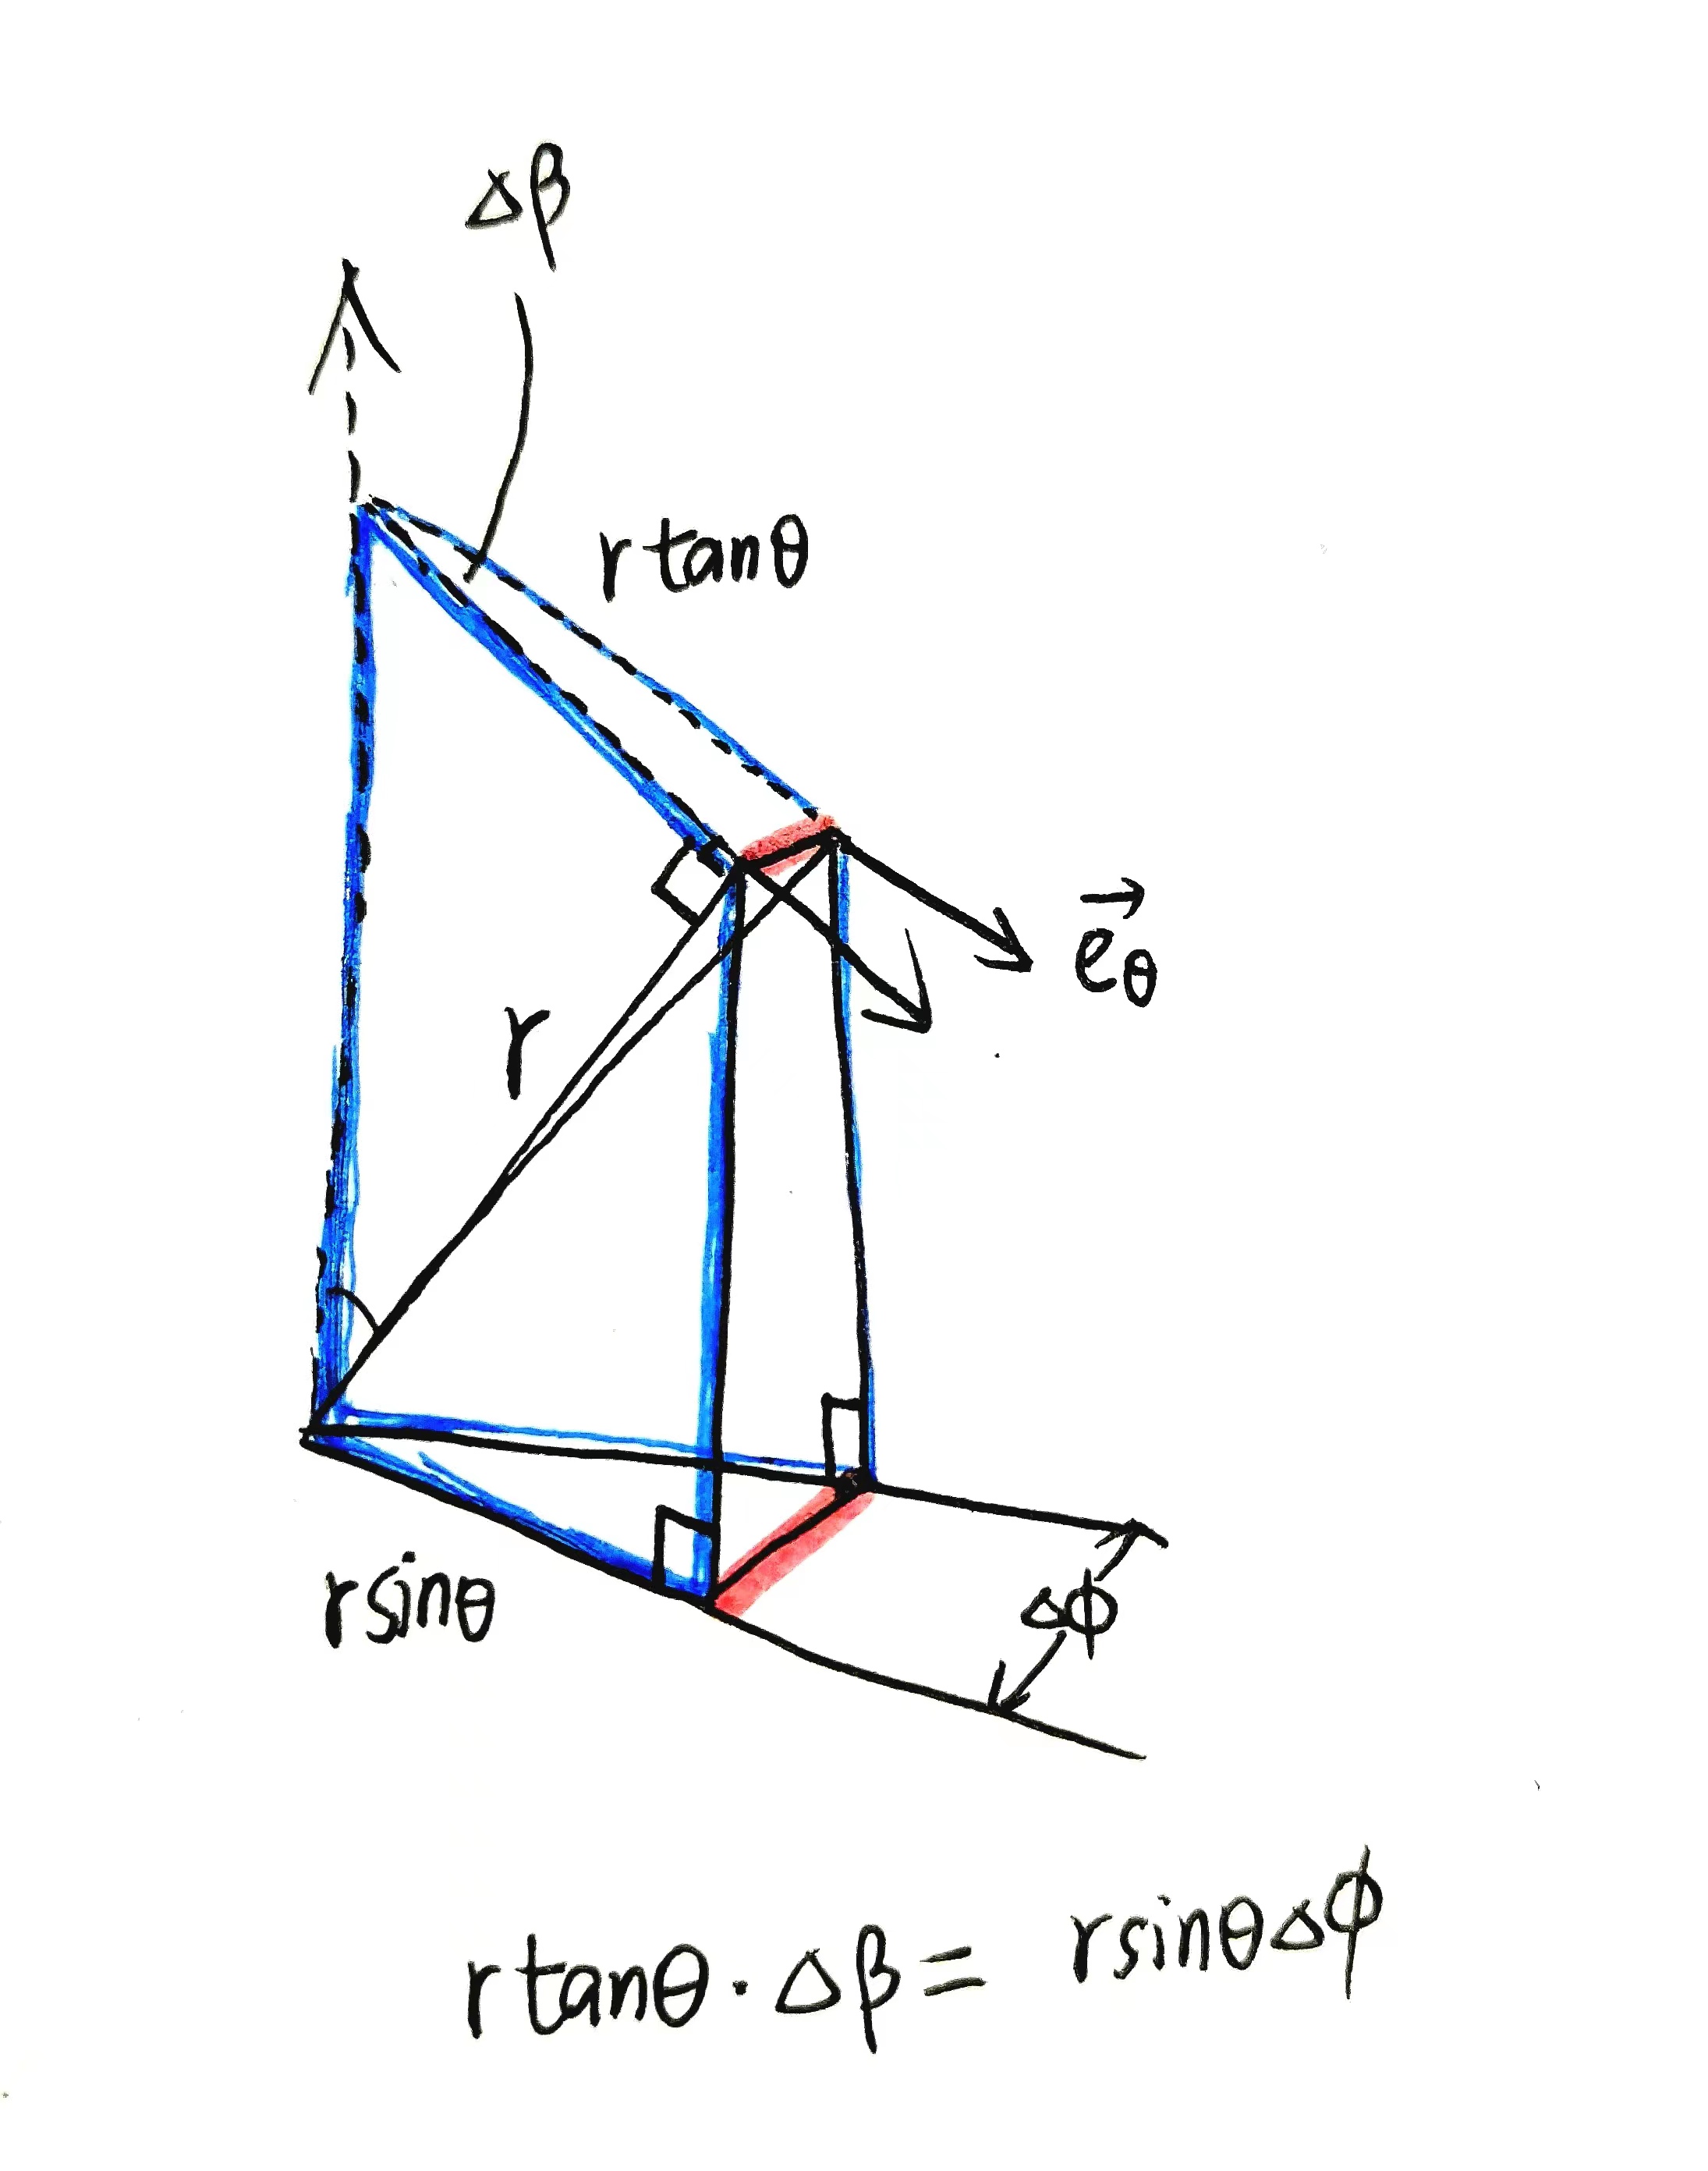 Δβ
r tanθ
e⃗θ
r
r sinθ
Δϕ
r tanθ · Δβ = r sinθ Δϕ